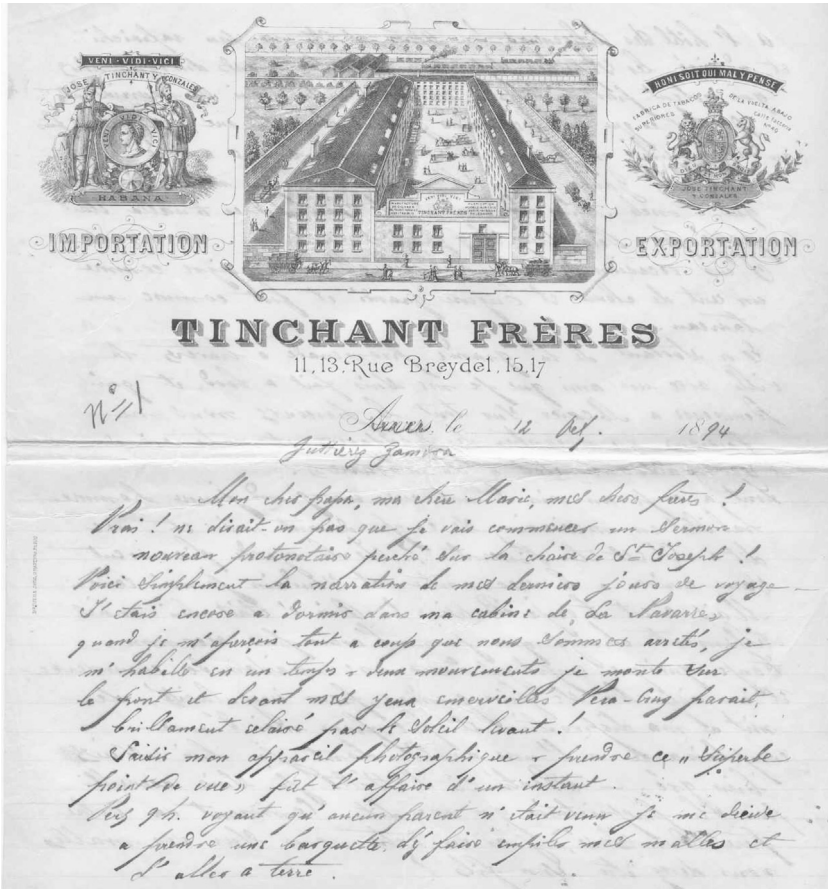 VENI·VIDI·VICI
JOSE TINCHANT Y GONZALES
VENI VIDI VICI
HABANA
IMPORTATION
TINCHANT FRÈRES
HONI SOIT QUI MAL Y PENSE
FABRICA DE TABACOS DE LA VUELTA ABAJO
JOSE TINCHANT
Y GONZALES
EXPORTATION
TINCHANT FRÈRES
11,13.Rue Breydel,15,17
Nº=1
Anvers, le 12 1894
Guttierez Zamora
Mon cher papa, ma chère Marie, mes chers frères !
Vrai ! ne dirait-on pas que je vais commencer un Sermon
nouveau protonotaire perché sur la chaire de St Joseph !
Voici Simplement la narration de mes derniers jours de voyage —
J'étais encore a dormir dans ma cabine de "La Navarre"
quand je m'aperçois tout a coup que nous Sommes arretés, je
m'habille en un temps & deux mouvements je monte sur
le pont et devant mes yeux emerveillés Vera-Cruz parait,
brillament eclairé par le Soleil levant !
Saisir mon appareil photographique & prendre ce "Superbe
point de vue" fût l'affaire d'un instant.
Vers 9 h. voyant qu'aucun parent n'etait venu je me decide
a prendre une barquette, d'y faire empiler mes malles et
d'aller a terre.